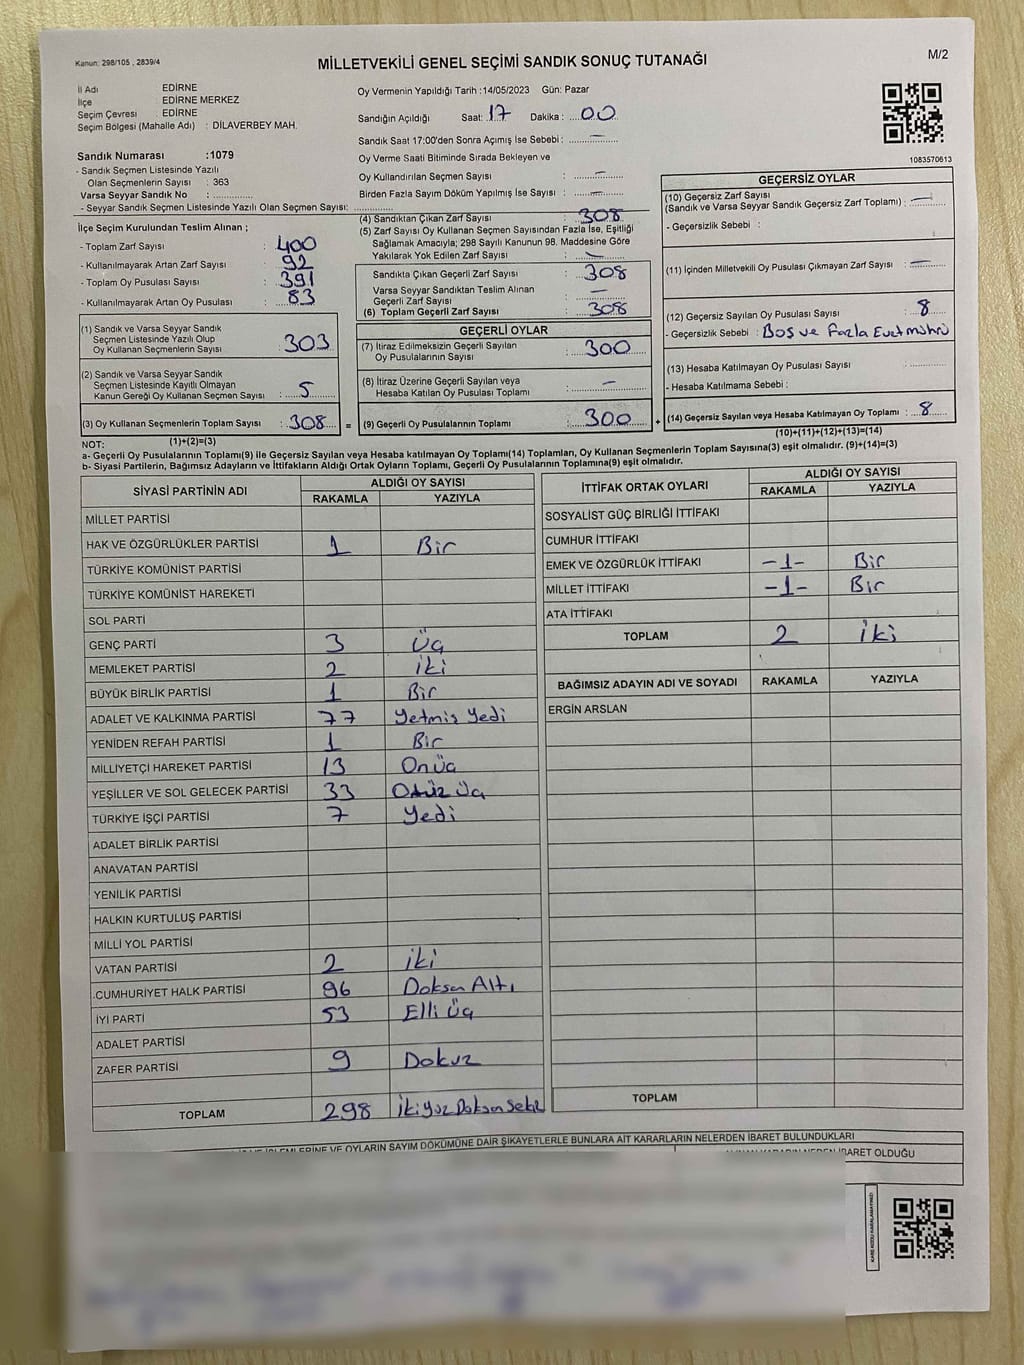 Kanun: 298/105 , 2839/4
MİLLETVEKİLİ GENEL SEÇİMİ SANDIK SONUÇ TUTANAĞI
M/2
İl Adı EDİRNE
İlçe EDİRNE MERKEZ
Seçim Çevresi : EDİRNE
Seçim Bölgesi (Mahalle Adı) : DİLAVERBEY MAH.
Sandık Numarası :1079
- Sandık Seçmen Listesinde Yazılı
Olan Seçmenlerin Sayısı : 363
Varsa Seyyar Sandık No : ..............
- Seyyar Sandık Seçmen Listesinde Yazılı Olan Seçmen Sayısı: ..............
Oy Vermenin Yapıldığı Tarih :14/05/2023 Gün: Pazar
Sandığın Açıldığı Saat: 17 Dakika : 00
Sandık Saat 17:00'den Sonra Açımış İse Sebebi : —
Oy Verme Saati Bitiminde Sırada Bekleyen ve
Oy Kullandırılan Seçmen Sayısı : —
Birden Fazla Sayım Döküm Yapılmış İse Sayısı : —
1083570613
İlçe Seçim Kurulundan Teslim Alınan ;
- Toplam Zarf Sayısı : 400
- Kullanılmayarak Artan Zarf Sayısı : 92
- Toplam Oy Pusulası Sayısı : 391
- Kullanılmayarak Artan Oy Pusulası : 83
(1) Sandık ve Varsa Seyyar Sandık
Seçmen Listesinde Yazılı Olup
Oy Kullanan Seçmenlerin Sayısı : 303
(2) Sandık ve Varsa Seyyar Sandık
Seçmen Listesinde Kayıtlı Olmayan
Kanun Gereği Oy Kullanan Seçmen Sayısı : 5
(3) Oy Kullanan Seçmenlerin Toplam Sayısı : 308 =
(1)+(2)=(3)
(4) Sandıktan Çıkan Zarf Sayısı : 308
(5) Zarf Sayısı Oy Kullanan Seçmen Sayısından Fazla İse, Eşitliği
Sağlamak Amacıyla; 298 Sayılı Kanunun 98. Maddesine Göre
Yakılarak Yok Edilen Zarf Sayısı : —
Sandıkta Çıkan Geçerli Zarf Sayısı : 308
Varsa Seyyar Sandıktan Teslim Alınan
Geçerli Zarf Sayısı : —
(6) Toplam Geçerli Zarf Sayısı : 308
GEÇERLİ OYLAR
(7) İtiraz Edilmeksizin Geçerli Sayılan
Oy Pusulalarının Sayısı : 300
(8) İtiraz Üzerine Geçerli Sayılan veya
Hesaba Katılan Oy Pusulası Toplamı : —
(9) Geçerli Oy Pusulalarının Toplamı : 300 +
GEÇERSİZ OYLAR
(10) Geçersiz Zarf Sayısı
(Sandık ve Varsa Seyyar Sandık Geçersiz Zarf Toplamı) : —
- Geçersizlik Sebebi :
(11) İçinden Milletvekili Oy Pusulası Çıkmayan Zarf Sayısı : —
(12) Geçersiz Sayılan Oy Pusulası Sayısı : 8
- Geçersizlik Sebebi : Boş ve Fazla Evet mührü
(13) Hesaba Katılmayan Oy Pusulası Sayısı : ..............
- Hesaba Katılmama Sebebi :
(14) Geçersiz Sayılan veya Hesaba Katılmayan Oy Toplamı : 8
(10)+(11)+(12)+(13)=(14)
NOT:
a- Geçerli Oy Pusulalarının Toplamı(9) ile Geçersiz Sayılan veya Hesaba katılmayan Oy Toplamı(14) Toplamları, Oy Kullanan Seçmenlerin Toplam Sayısına(3) eşit olmalıdır. (9)+(14)=(3)
b- Siyasi Partilerin, Bağımsız Adayların ve İttifakların Aldığı Ortak Oyların Toplamı, Geçerli Oy Pusulalarının Toplamına(9) eşit olmalıdır.
SİYASİ PARTİNİN ADI ALDIĞI OY SAYISI
RAKAMLA YAZIYLA
MİLLET PARTİSİ
HAK VE ÖZGÜRLÜKLER PARTİSİ 1 Bir
TÜRKİYE KOMÜNİST PARTİSİ
TÜRKİYE KOMÜNİST HAREKETİ
SOL PARTİ
GENÇ PARTİ 3 Üç
MEMLEKET PARTİSİ 2 İki
BÜYÜK BİRLİK PARTİSİ 1 Bir
ADALET VE KALKINMA PARTİSİ 77 Yetmiş Yedi
YENİDEN REFAH PARTİSİ 1 Bir
MİLLİYETÇİ HAREKET PARTİSİ 13 Onüç
YEŞİLLER VE SOL GELECEK PARTİSİ 33 Otüz Üç
TÜRKİYE İŞÇİ PARTİSİ 7 Yedi
ADALET BİRLİK PARTİSİ
ANAVATAN PARTİSİ
YENİLİK PARTİSİ
HALKIN KURTULUŞ PARTİSİ
MİLLİ YOL PARTİSİ
VATAN PARTİSİ 2 İki
CUMHURİYET HALK PARTİSİ 96 Doksan Altı
İYİ PARTİ 53 Elli Üç
ADALET PARTİSİ
ZAFER PARTİSİ 9 Dokuz
TOPLAM 298 İkiyüz Doksan Sekiz
İTTİFAK ORTAK OYLARI ALDIĞI OY SAYISI
RAKAMLA YAZIYLA
SOSYALİST GÜÇ BİRLİĞİ İTTİFAKI
CUMHUR İTTİFAKI
EMEK VE ÖZGÜRLÜK İTTİFAKI -1- Bir
MİLLET İTTİFAKI -1- Bir
ATA İTTİFAKI
TOPLAM 2 İki
BAĞIMSIZ ADAYIN ADI VE SOYADI RAKAMLA YAZIYLA
ERGİN ARSLAN
TOPLAM
İŞLEMLERİNE VE OYLARIN SAYIM DÖKÜMÜNE DAİR ŞİKAYETLERLE BUNLARA AİT KARARLARIN NELERDEN İBARET BULUNDUKLARI
İBARET OLDUĞU